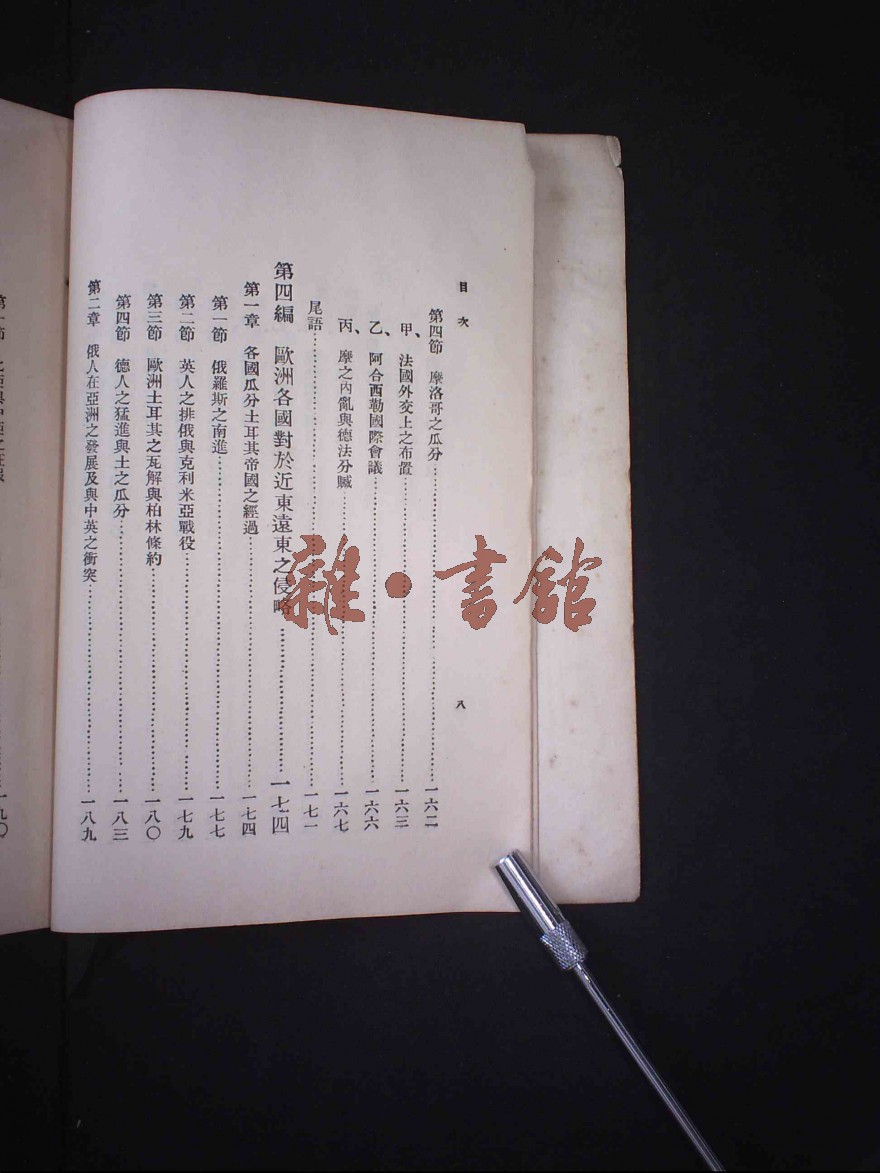 目次
八
第四節 摩洛哥之瓜分……一六二
甲、法國外交上之布置……一六三
乙、阿合西勒國際會議……一六六
丙、摩之內亂與德法分贓……一六七
尾語……一七一
第四編 歐洲各國對於近東遠東之侵略……一七四
第一章 各國瓜分土耳其帝國之經過……一七四
第一節 俄羅斯之南進……一七七
第二節 英人之排俄與克利米亞戰役……一七九
第三節 歐洲土耳其之瓦解與柏林條約……一八〇
第四節 德人之猛進與土之瓜分……一八三
第二章 俄人在亞洲之發展及與中英之衝突……一八九
一九〇
雜·書館